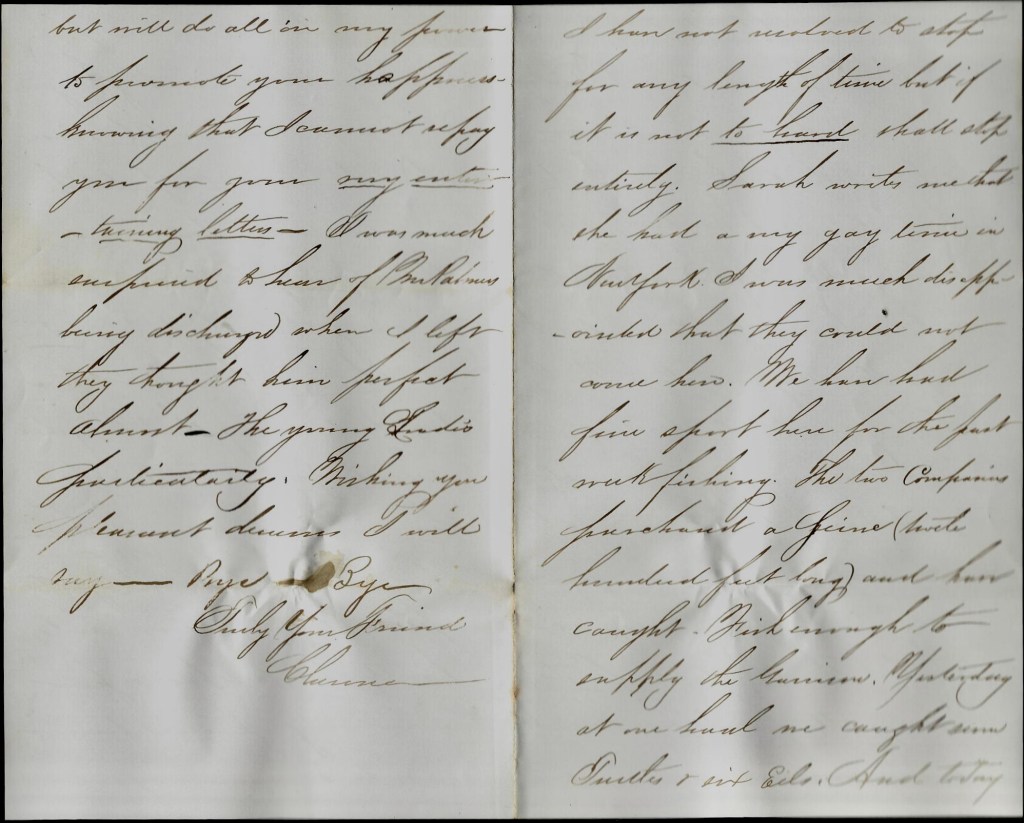 but will do all in my power
to promote your happness
knowing that I cannot repay
you for your very enter
- taining letters - I was much
surprised to hear of Mr
being discharged when I left
they thought him perfect
almost - The young Ladies
particularly. Wishing you
pleasant dreams I will
say — Bye — Bye
Truly Your Friend
I have not resolved to stop
for any length of time but if
it is not to hard shall stop
entirely. Sarah writes me that
she had a very gay time in
New York. I was much disapp-
-ointed that they could not
come here. We have had
fine sport here for the past
week fishing. The two Companies
purchased a Seine (twelve
hundred feet long) and have
caught. Fish enough to
supply the Garrison. Yesterday
at one haul we caught seven
Turtles & six Eels. And today